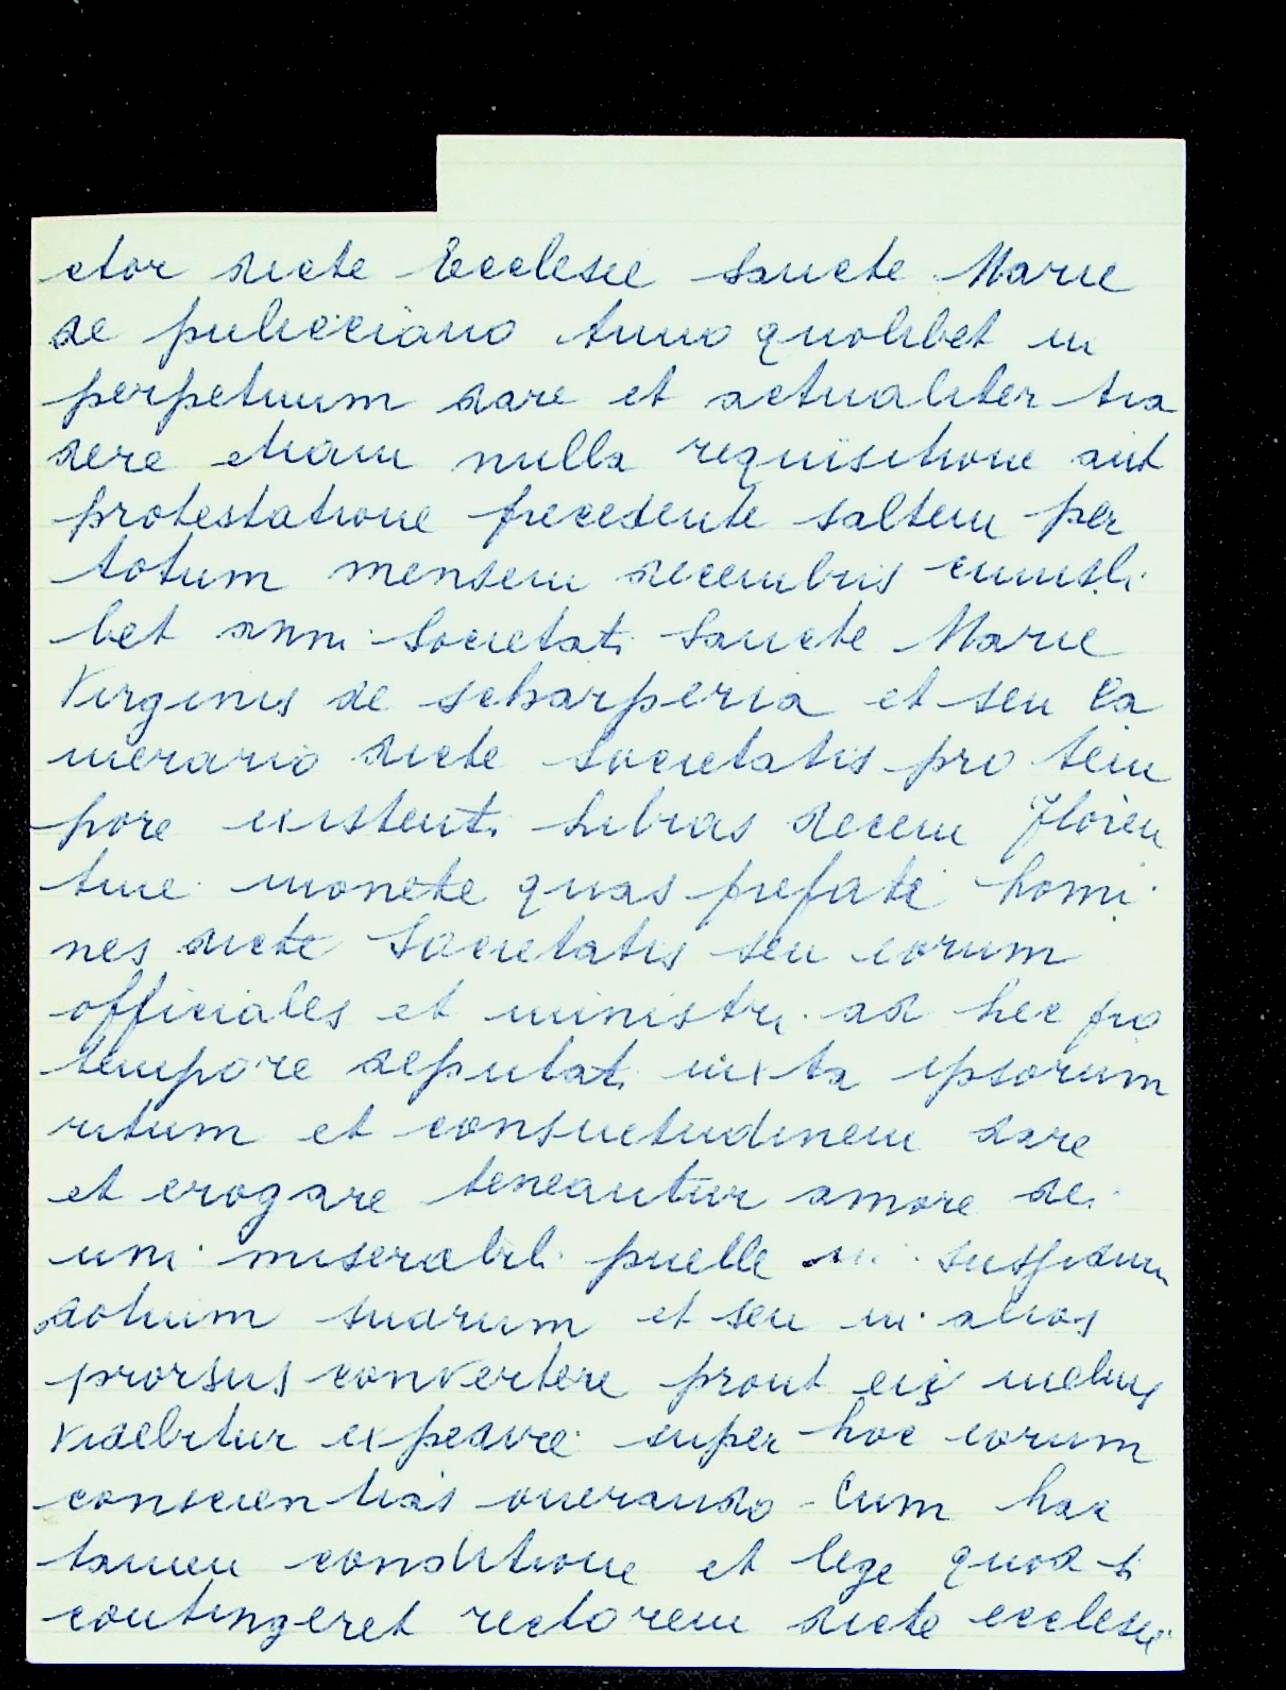 ctor dicte Ecclesie Sancte Marie
de pulicciano Anno quolibet in
perpetuum dare et actualiter tra
dere etiam nulla requisitione aut
protestatione precedente saltem per
totum mensem decembris cuiusli
bet anni Societati Sancte Marie
Virginis de scharperia et seu Ca
merario dicte Societatis pro tem
pore existenti Libras decem Floren
tine monete quas prefati homi
nes dicte Societatis seu eorum
officiales et ministri ad hec pro
tempore deputati iuxta ipsorum
ritum et consuetudinem dare
et erogare teneantur amore dei
uni miserabili puelle in
dotium suarum et seu in alios
prorsus convertere prout eis melius
videbitur expedire super hoc eorum
conscientias onerando Cum hac
tamen conditione et lege quod si
contingeret rectorem dicte ecclesie